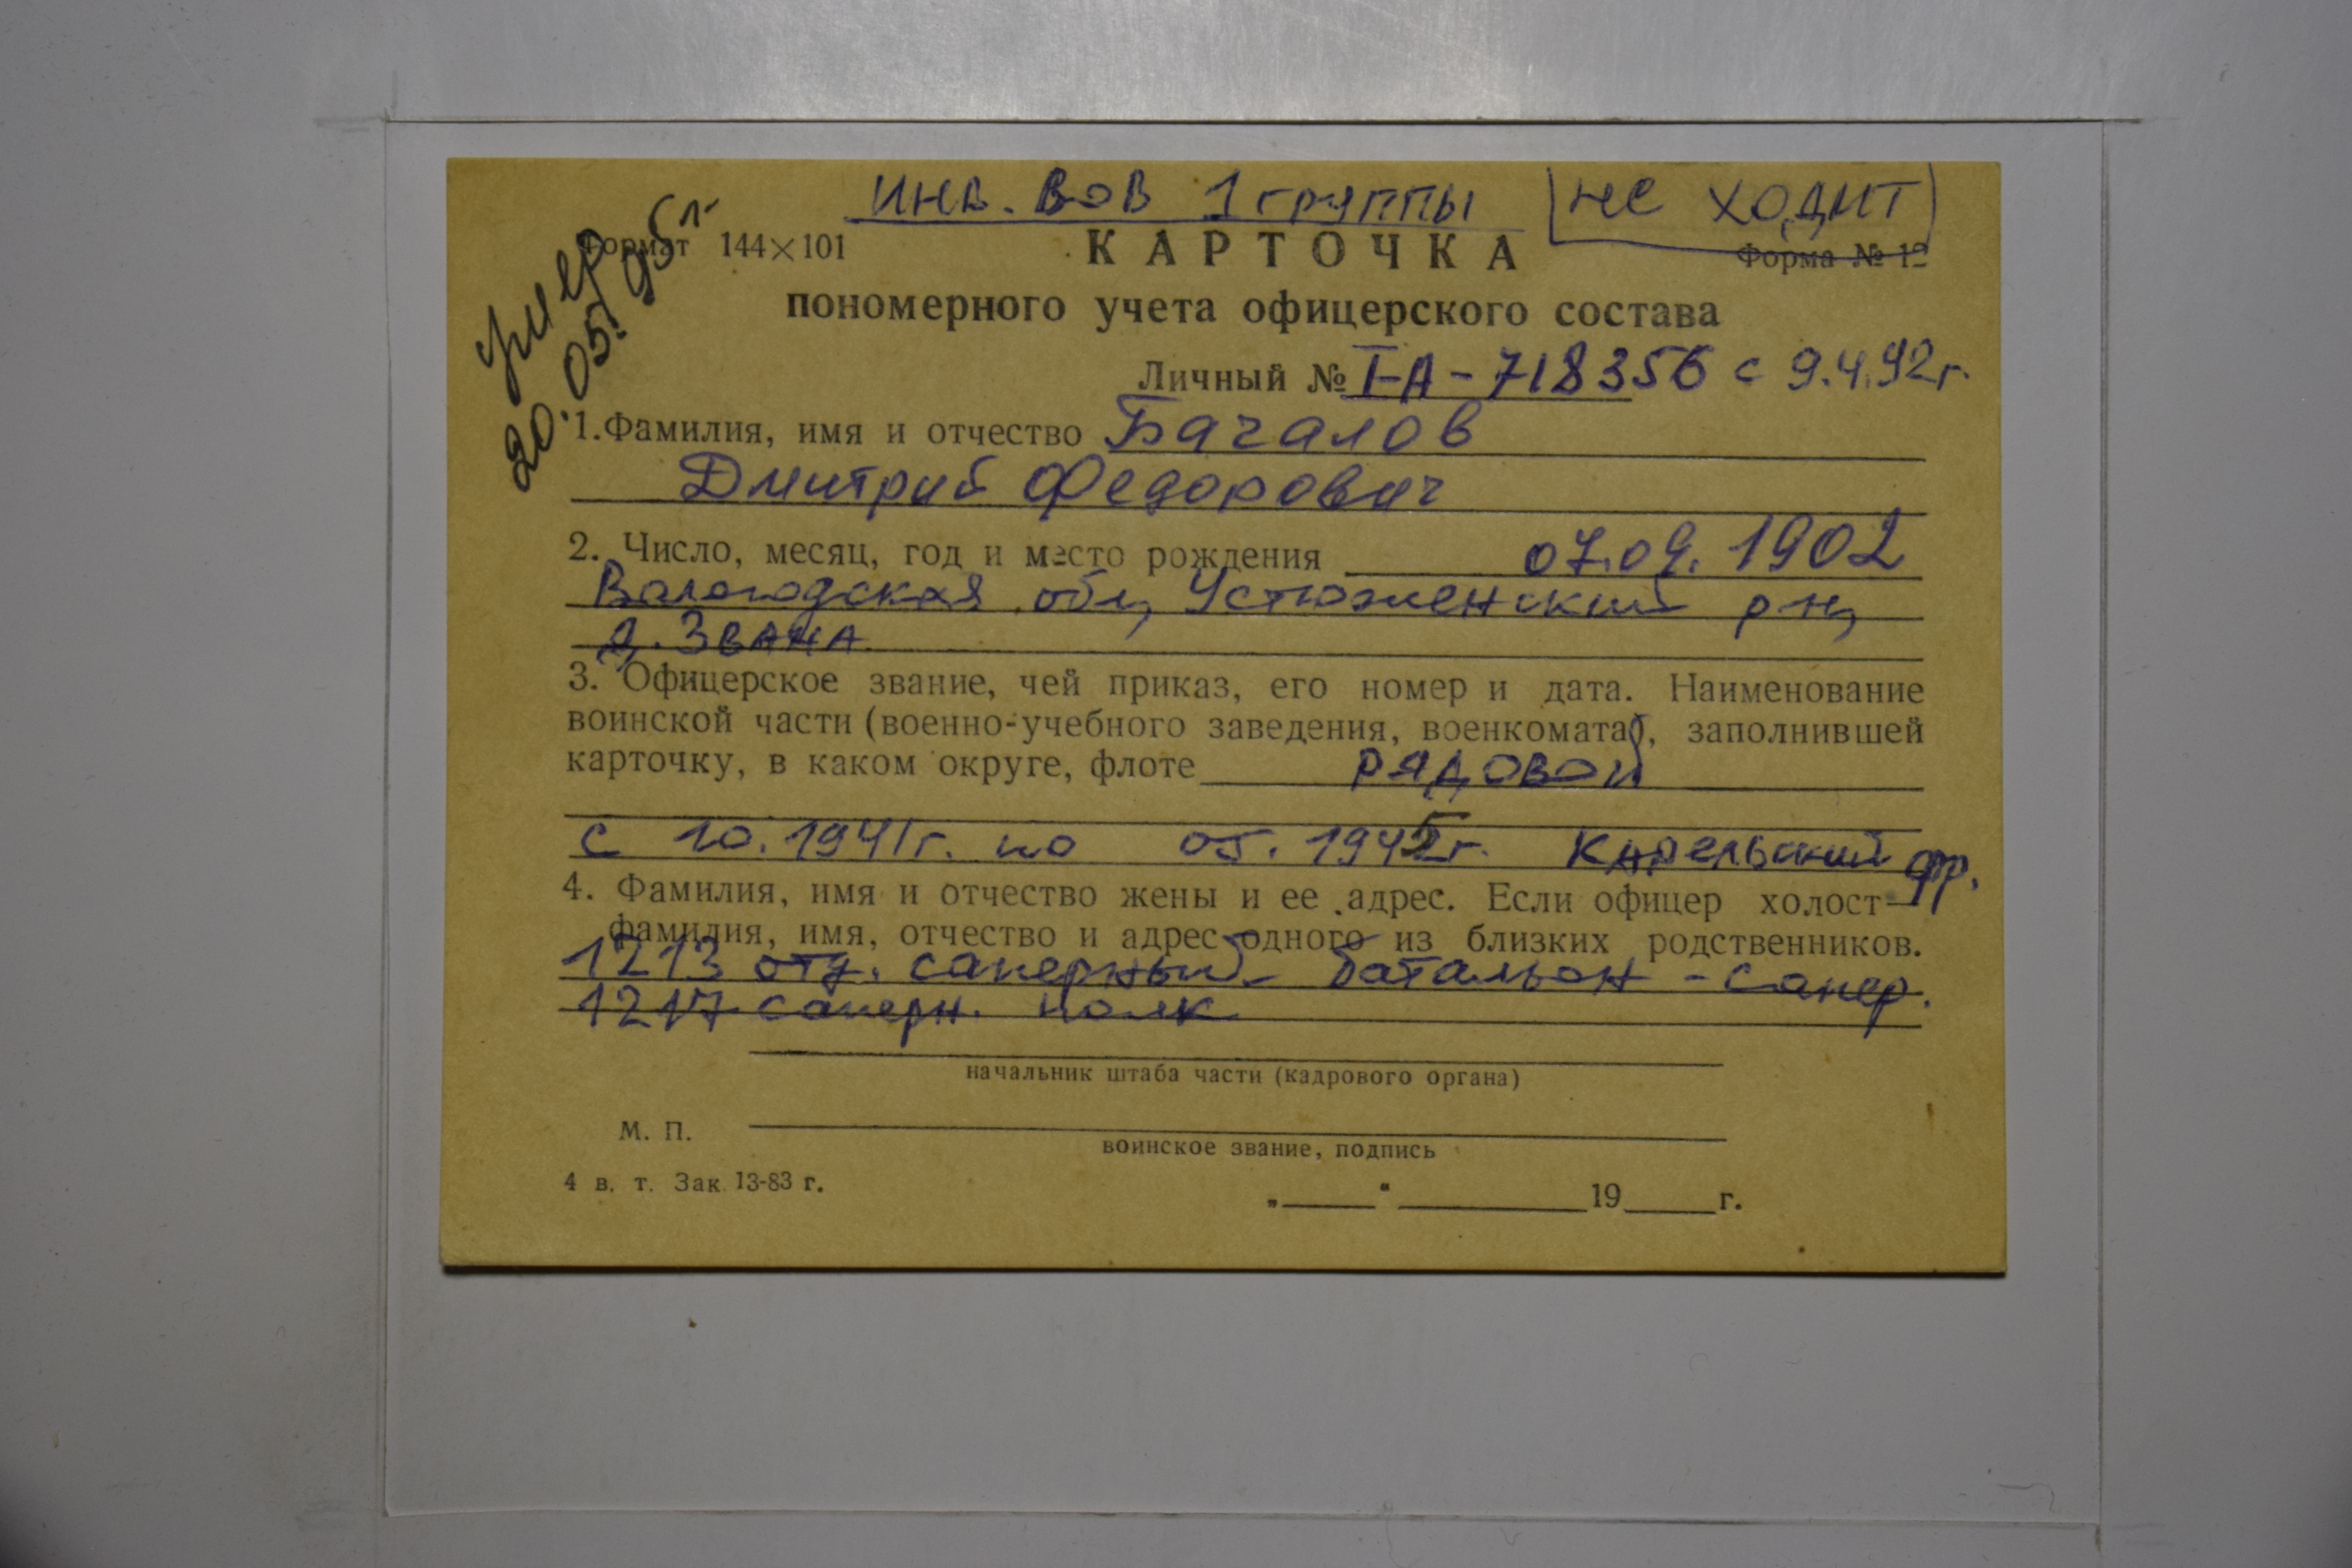 инв. ВОВ 1 группы НЕ ХОДИТ
умер
20.05.95г.
Формат 144×101 КАРТОЧКА Форма № 12
пономерного учета офицерского состава
Личный № I-А-718356 с 9.4.92г.
1. Фамилия, имя и отчество Бачалов
Дмитрий Федорович
2. Число, месяц, год и место рождения 07.09.1902
Вологодская обл, Устюженский р-н,
д. Звана
3. Офицерское звание, чей приказ, его номер и дата. Наименование
воинской части (военно-учебного заведения, военкомата), заполнившей
карточку, в каком округе, флоте рядовой
с 10.1941г. по 05.1945г. Карельский фр.
4. Фамилия, имя и отчество жены и ее адрес. Если офицер холост—
фамилия, имя, отчество и адрес одного из близких родственников.
1213 отд. саперный батальон - сапер.
1217 саперн. полк
начальник штаба части (кадрового органа)
М. П.
воинское звание, подпись
4 в. т. Зак. 13-83 г.
„ “ 19 г.